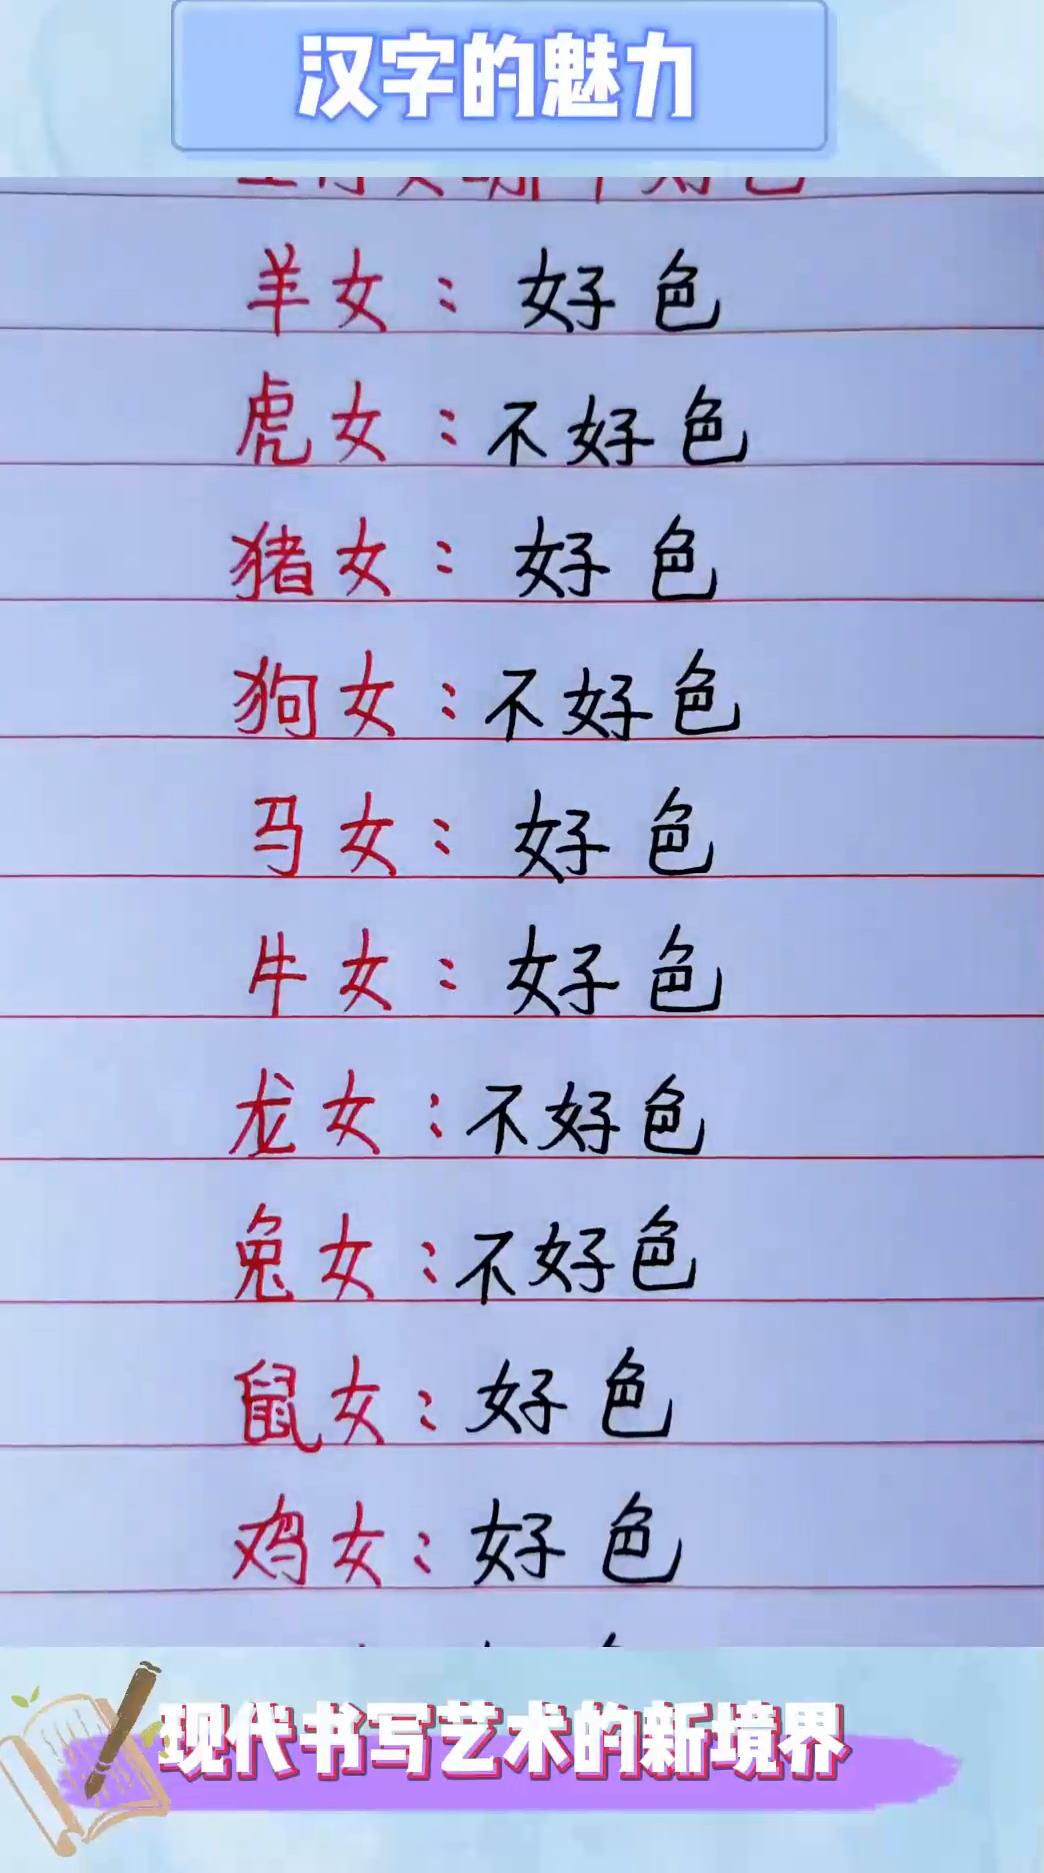 汉字的魅力
羊女：好色
虎女：不好色
猪女：好色
狗女：不好色
马女：好色
牛女：好色
龙女：不好色
兔女：不好色
鼠女：好色
鸡女：好色
现代书写艺术的新境界